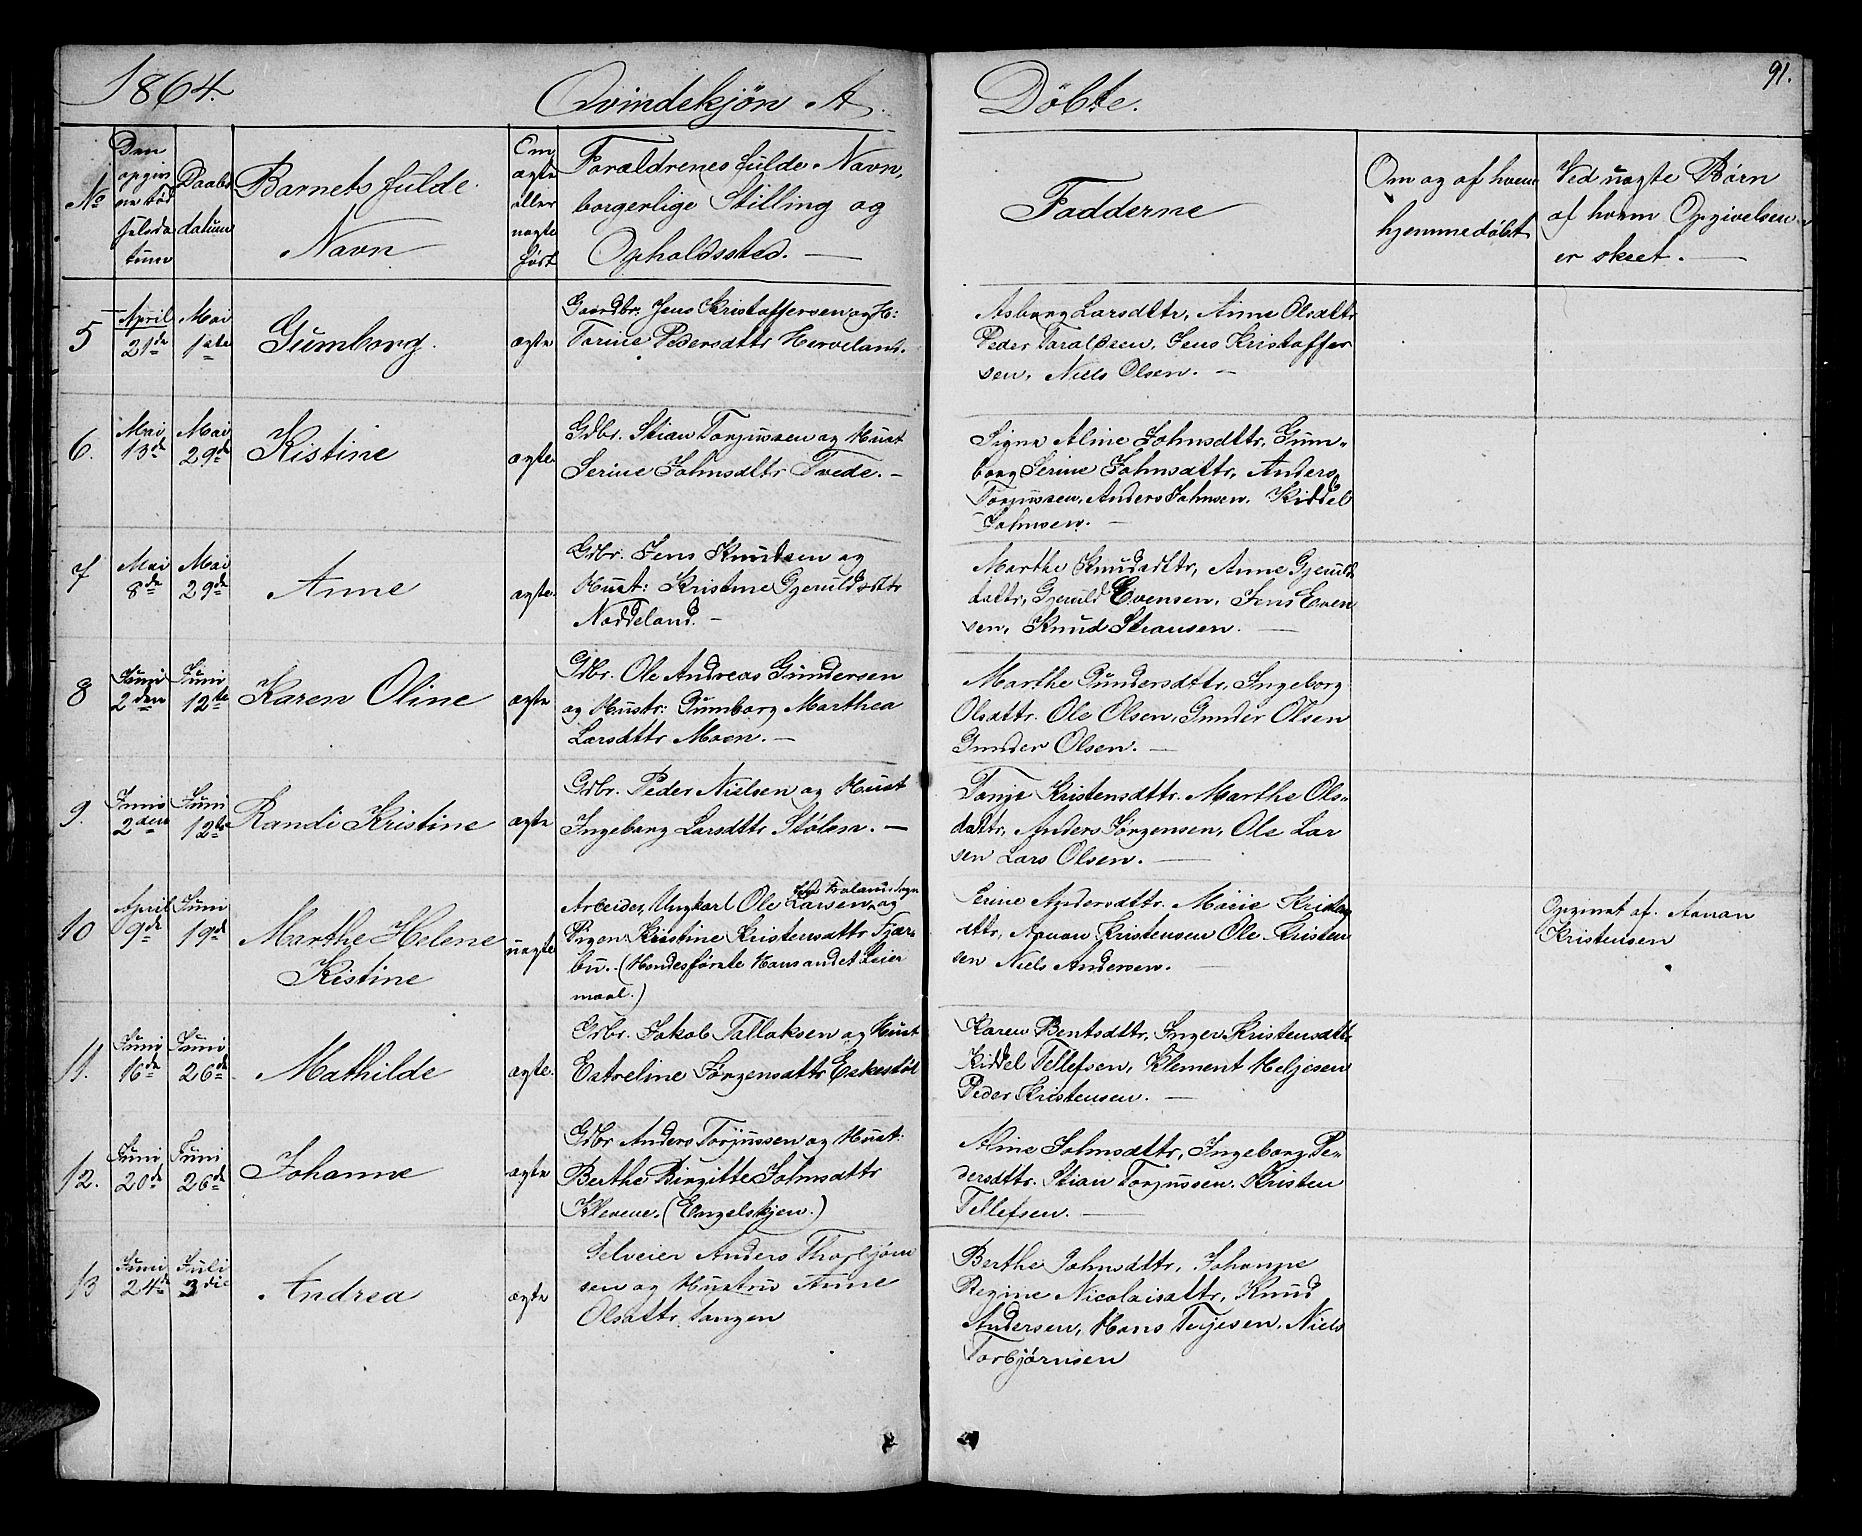 1864.
Qvindekjön A
Döbte.
91.
No
Den opgivne Födselsdatum
Daabsdatum
Barnets fulde Navn
Om ægte eller uægte födt
Forældrenes fulde Navn, borgerlige Stilling og Opholdssted. —
Fadderne
Om og af hvem hjemmedöbt
Ved uægte Börn af hvem Opgivelsen er skeet. —
5
April 21de
Mai 1ste
Gumborg.
ægte
Gaardbr. Jens Kristoffersen og H:
Torine Pedersdttr Herveland.
Asborg Larsdttr, Anne Olsdttr
Peder Taraldsen, Jens Kristoffer
sen, Niels Olsen. —
6.
Mai 13de
Mai 29de
Kistine
ægte
Gdbr. Stian Torjussen og Hust
Serine Johnsdttr Tvede. —
Signe Aline Johnsdttr, Gum-
borg Serine Johnsdttr, Anders
Torjussen, Anders Johnsen, Kiddel
Johnsen. —
7
Mai 8de
Mai 29de
Anne
ægte.
Gdbr. Jens Knudsen og
Hust: Kristine Gjeruldsdttr
Noddeland. —
Marthe Knudsdttr, Anne Gjerulds
dattr, Gjeruld Evensen, Jens Even
sen, Knud Stiansen. —
8
Juni 2den
Juni 12te
Karen Oline
ægte
Gdbr. Ole Andreas Gundersen
og Hustr: Gumborg Marthea
Larsdttr Moen. —
Marthe Gundersdttr, Ingeborg
Olsdttr. Ole Olsen, Gunder Olsen
Gunder Olsen. —
9.
Juni 2den
Juni 12te
Randi Kristine
ægte
Gdbr. Peder Nielsen og Hust
Ingeborg Larsdttr Stölen. —
Tonje Kristensdttr. Marthe Ols-
dattr, Anders Jörgensen, Ole Lar
sen Lars Olsen. —
10
April 9de
Juni 19de
Marthe Helene
Kistine
uægte
Arbeider, Ungkarl Ole Larsen, og
Pigen Kristine Kristensdttr Tjære
bu. (Hendes förste Hans andet Leier
maal.)
Serine Andersdttr. Marie Kristens
dttr, Aanon Kristensen Ole Kristen
sen Niels Andersen. —
Opgivet af. Aanon
Kristensen
11.
Juni 16de
Juni 26de
Mathilde
ægte.
Gdbr. Jakob Tallaksen og Hust
Estreline Jörgensdttr Eskestöl
Karen Bentsdttr, Inger Kristensdttr
Kiddel Tellefsen, Klement Heljesen
Peder Kristensen. —
12.
Juni 20de
Juni 26de
Johanne
ægte
Gdbr Anders Torjussen og Hust:
Berthe Birgitte Johnsdttr
Klevene. (Engelskjen.)
Aline Johnsdttr, Ingeborg Pe-
dersdttr. Stian Torjussen. Kristen
Tellefsen. —
13
Juni 24de
Juli 3die
Andrea
ægte
Selveier Anders Thorbjörn
sen og Hustru Anne
Olsdttr. Tangen
Berthe Johnsdttr, Johanne
Regine Nicolaisdttr, Knud
Andersen, Hans Terjesen, Niels
Torbjörnsen